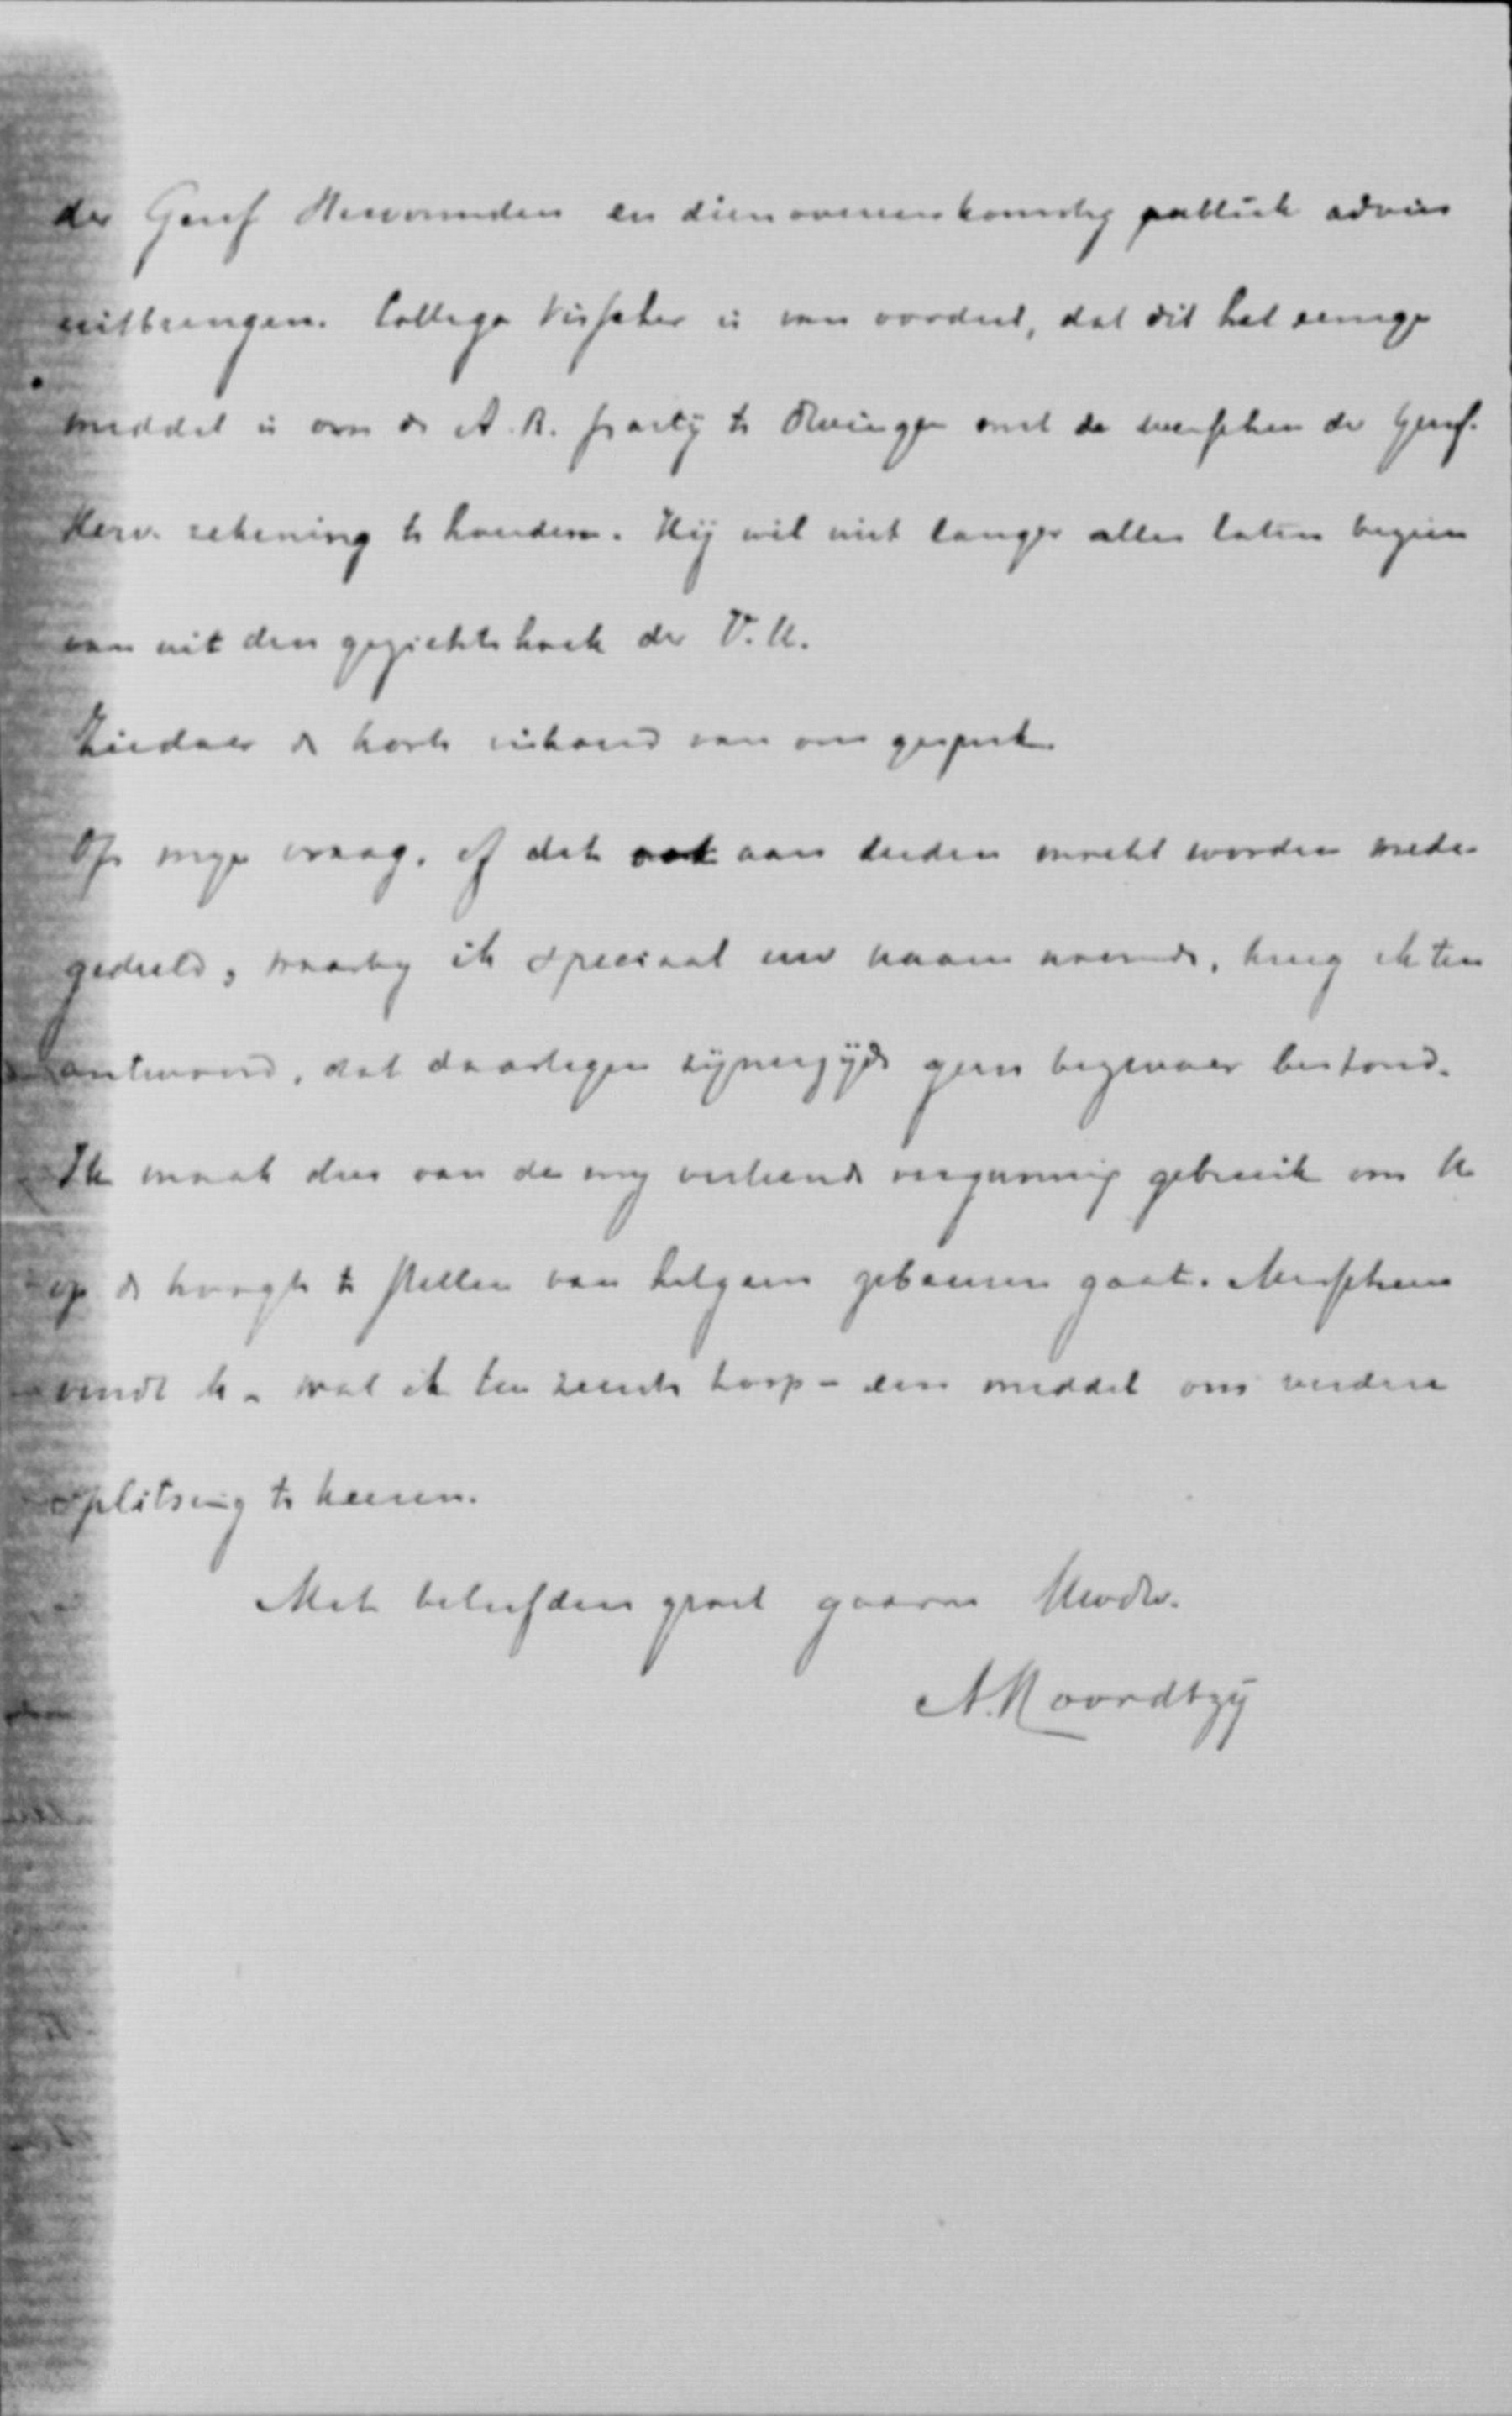 der Geref Hervormden en dienovereenkomstig publiek advies
uitbrengen. Collega Visscher is van oordeel, dat dit het eenige
middel is om de A. R. partij te dwingen met de wenschen der Geref.
Herv. rekening te houden. Hij wil niet langer alles laten bezien
van uit den gezichtshoek der V. U.
Ziedaar de korte inhoud van ons gesprek
Op mijn vraag, of dit ook aan derden mocht worden mede-
gedeeld, waarbij ik speciaal uw naam noemde, kreeg ik ten
antwoord, dat daartegen zijnerzijds geen bezwaar bestond.
Ik maak dus van de mij verleende vergunning gebruik om U
op de hoogte te stellen van hetgeen gebeuren gaat. Misschien
vindt U - wat ik ten zeerste hoop - een middel om verdere
splitsing te keeren.
Met beleefden groet gaarne Uwdw.
A. Noordtzij